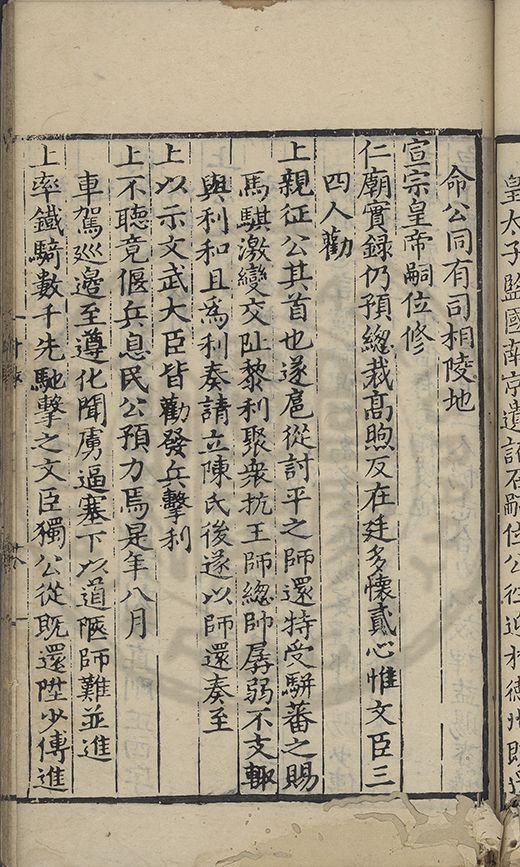 皇太子監國南京遺詔召嗣位公往迎於德州既至
命公同有司相陵地
宣宗皇帝嗣位修
仁廟實録仍預緫裁高煦反在廷多懷貳心惟文臣三
四人勸
上親征公其首也遂扈從討平之師還特受駢蕃之賜
馬騏激變交阯黎利聚衆抗王師緫帥孱弱不支輙
與利和且爲利奏請立陳氏後遂以師還奏至
上以示文武大臣皆勸發兵擊利
上不聽竟偃兵息民公預力焉是年八月
車駕廵邊至遵化聞虜逼塞下以道阨師難並進
上率鐵騎數千先馳擊之文臣獨公從既還陞少傅進